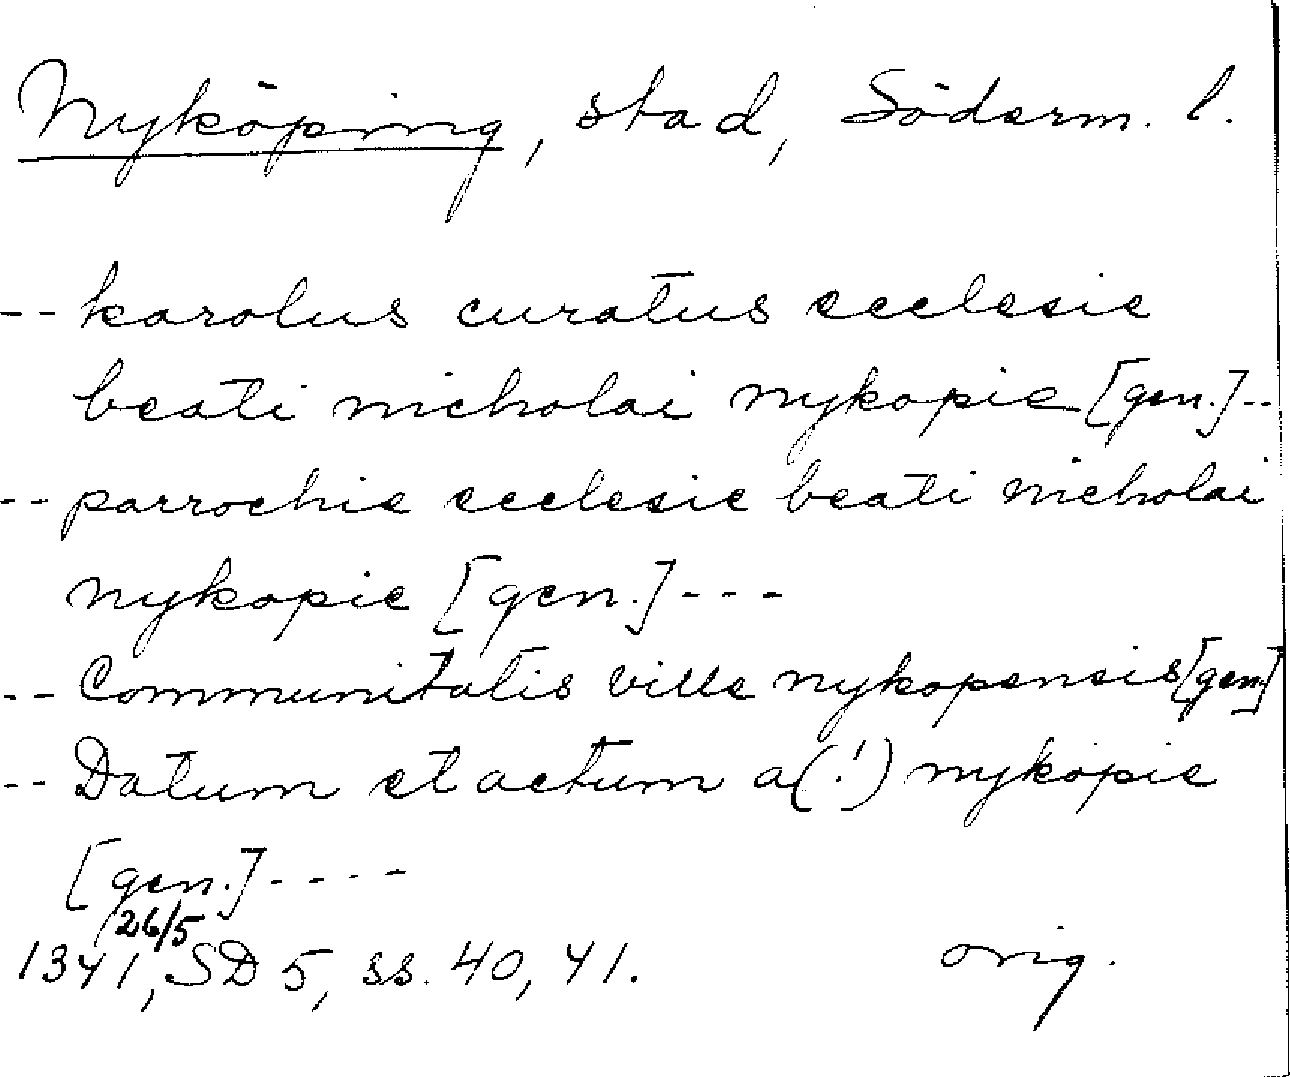 Nyköping, stad, Söderm. l.
-- karolus curatus ecclesie
beati nicholai nykopie [gen.]--
-- parrochie ecclesie beati nicholai
nykopie [gen.]---
-- Communitatis ville nykopensis [gen.]
-- Datum et actum a(!) nykopie
[gen.]----
26/5
1341, SD 5, ss. 40, 41. orig.